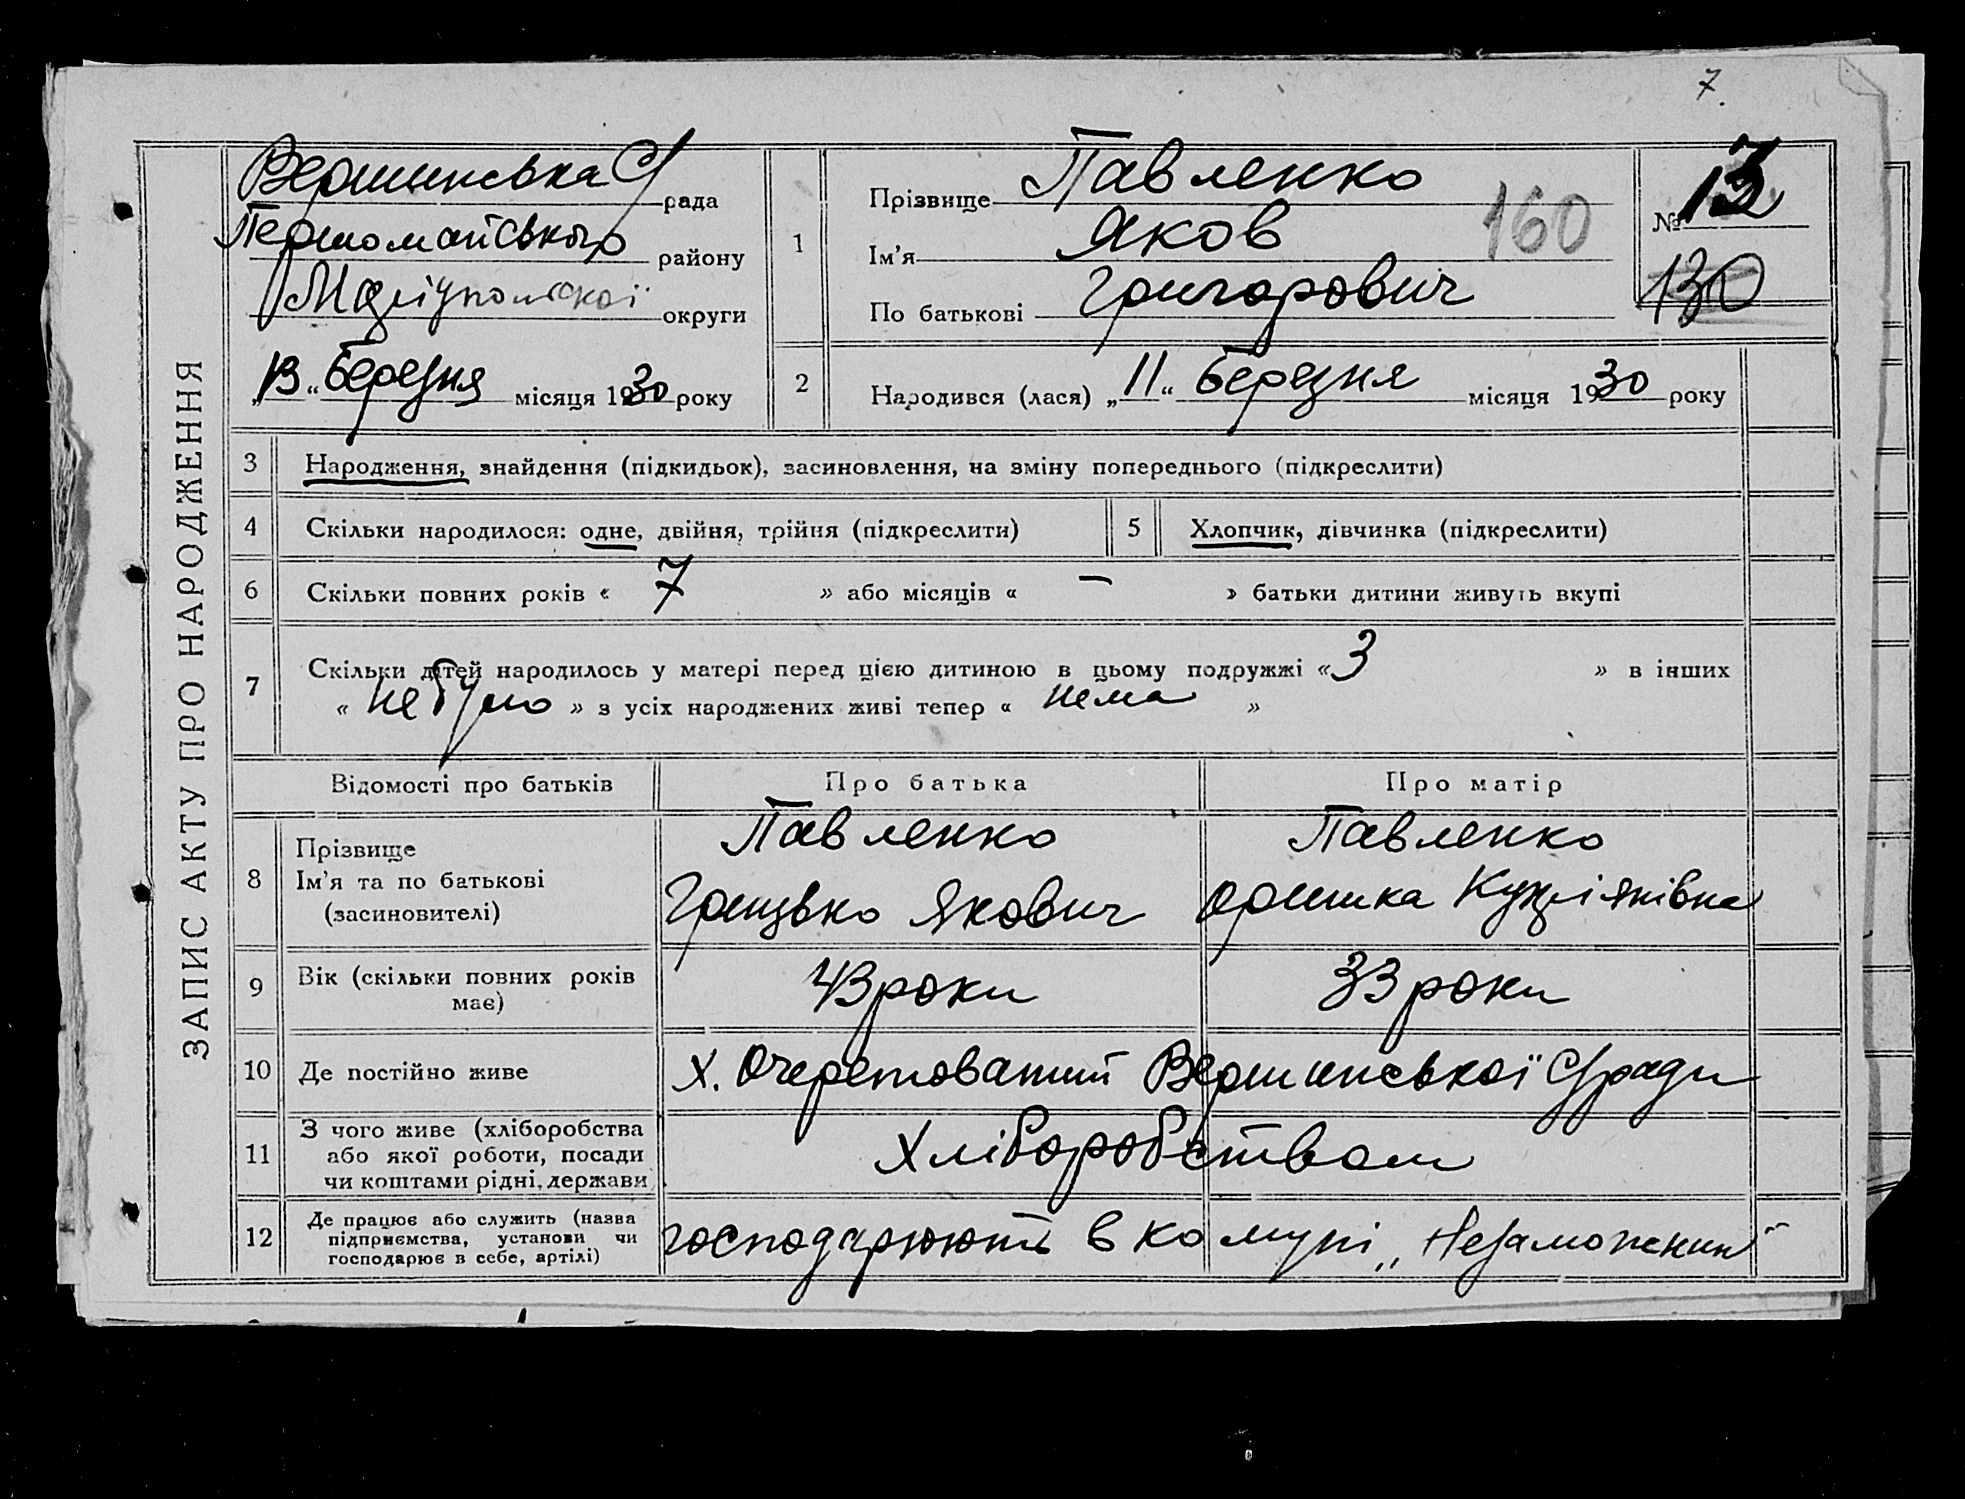 7.
ЗАПИС АКТУ ПРО НАРОДЖЕННЯ
Вершинська С/рада
Першомайського району
Маріупольскої округи
„13“ березня місяця 1930 року
1
Прізвище Павленко
Ім'я Яков
По батькові Григорович
160
№ 13
130
2 Народився (лася) „11“ березня місяця 1930 року
3 Народження, знайдення (підкидьок), засиновлення, на зміну попереднього (підкреслити)
4 Скільки народилося: одне, двійня, трійня (підкреслити) 5 Хлопчик, дівчинка (підкреслити)
6 Скільки повних років « 7 » або місяців « – » батьки дитини живуть вкупі
7 Скільки дітей народилось у матері перед цією дитиною в цьому подружжі « 3 » в інших
« не було » з усіх народжених живі тепер « нема »
Відомості про батьків Про батька Про матір
8 Прізвище Павленко Павленко
Ім'я та по батькові Грицько Якович Оришка
(засиновителі)
9 Вік (скільки повних років має) 43 роки 33 роки
10 Де постійно живе х. Очеретоватий Вершинської С/ради
11 З чого живе (хліборобства
або якої роботи, посади
чи коштами рідні, держави Хліборобством
12 Де працює або служить (назва
підприємства, установи чи
господарює в себе, артілі) господарюють в комуні „Незаможник"